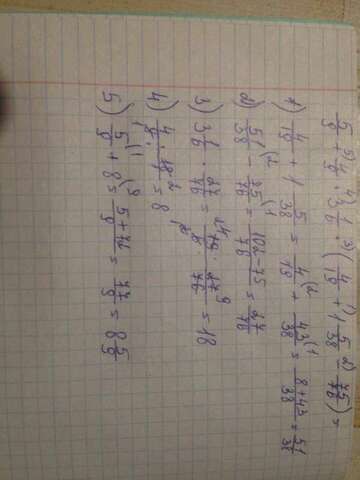 5/9 + 4/9 · 3 1/6 · (4/19 + 1 5/38 - 75/76) =
1) 4/19 + 1 5/38 = 4/19 + 43/38 = 8+43/38 = 51/38
2) 51/38 - 75/76 = 102-75/76 = 27/76
3) 3 1/6 · 27/76 = 27/76 = 18
4) 4/9 · 18/1 = 8
5) 5/9 + 8 = 5+72/9 = 77/9 = 8 5/9